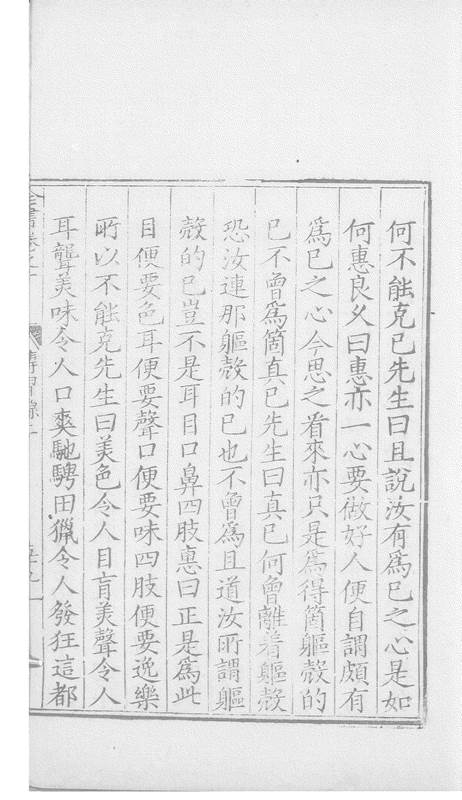 何不能克己先生曰且說汝有爲己之心是如
何惠良乆曰惠亦一心要做好人便自謂頗有
爲己之心今思之看來亦只是爲得箇軀殼的
己不曾爲箇真己先生曰真己何曾離着軀殼
恐汝連那軀殼的己也不曾爲且道汝所謂軀
殼的己豈不是耳目口鼻四肢惠曰正是爲此
目便要色耳便要聲口便要味四肢便要逸樂
所以不能克先生曰美色令人目盲美聲令人
耳聾美味令人口爽馳騁田獵令人發狂這都